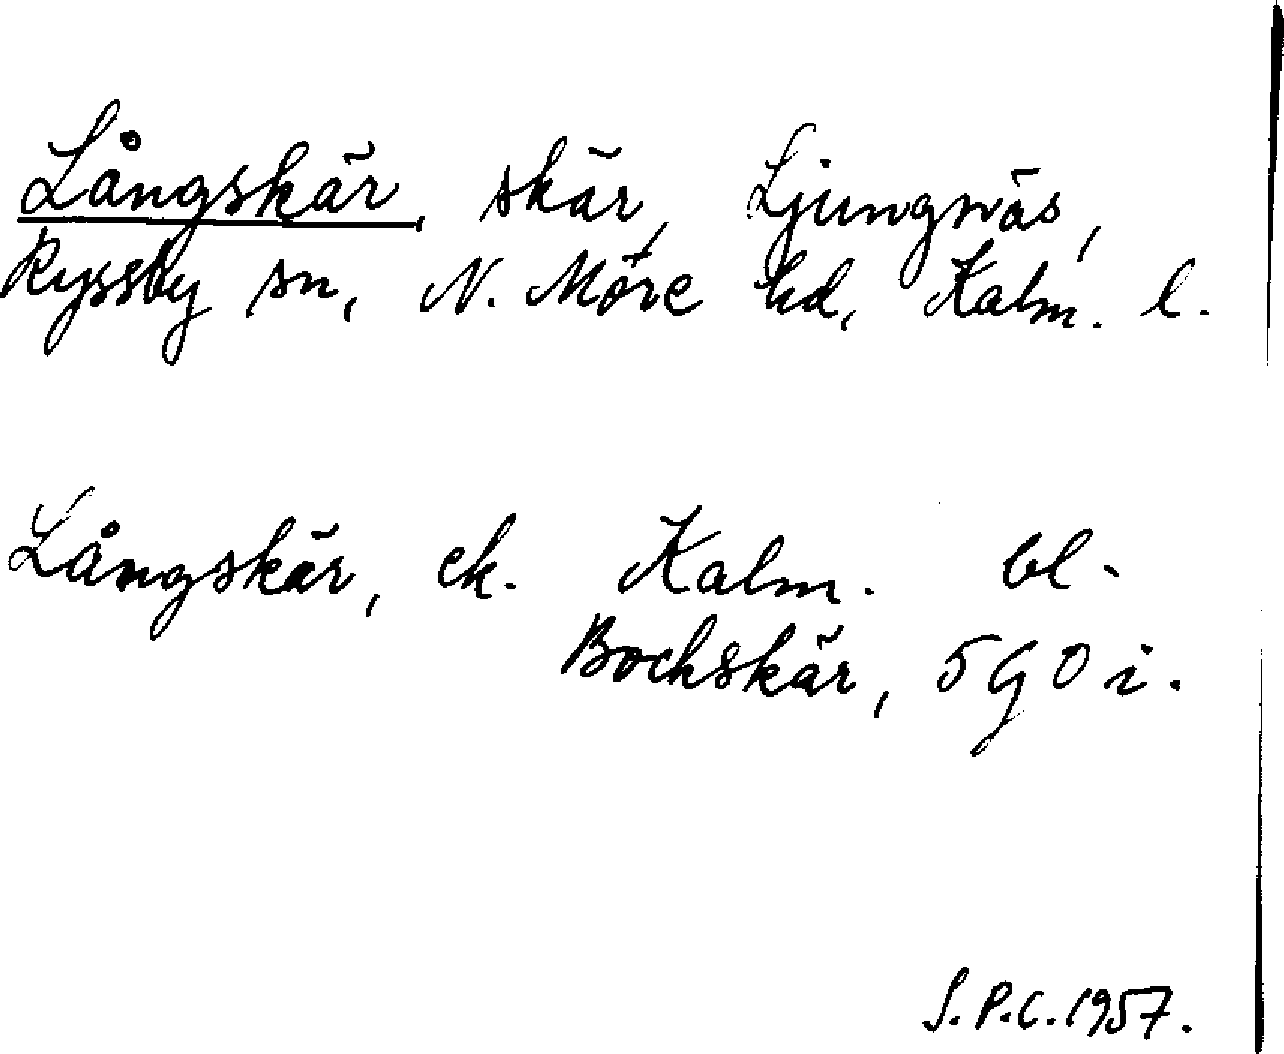 Långskär, skär, Ljungnäs,
Ryssby sn, N. Möre hd, Kalm. l.
Långskär, ek. Kalm. bl.
Bochskär, 5 G 0 i.
S.P.C. 1957.